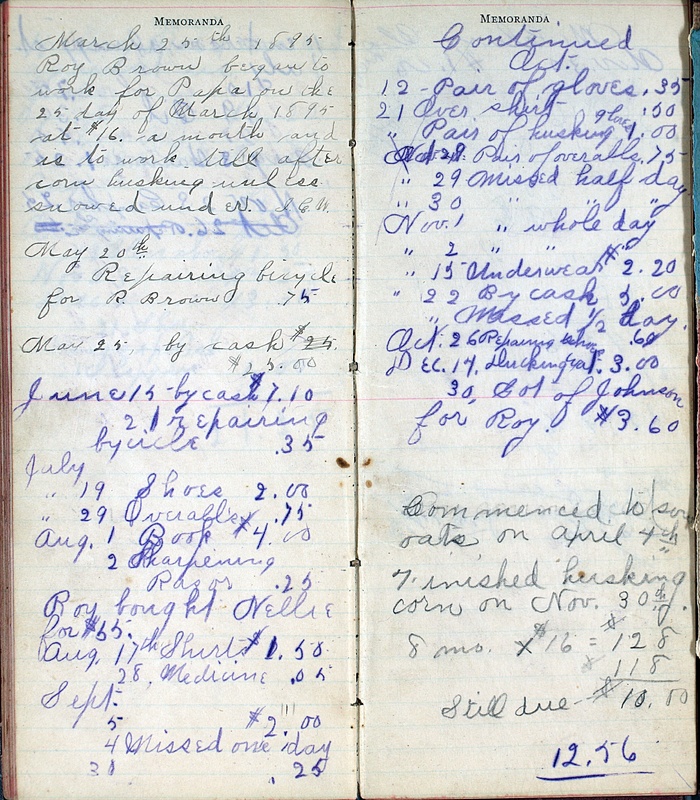 MEMORANDA
March 25th 1895
Roy Brown began to
work for Papa on the
25 day of March 1895
at $16. a month and
is to work till after
corn husking unless
snowed under.
May 20th
Repairing bicycle
for R. Brown .75
May 25, by cash $25.
$25.00
June 15 by cash $7.10
21 repairing
bycicle .35
July
" 19 Shoes 2.00
" 29 Overalls .75
Aug. 1 Book $4.00
2 Sharpening
Razor .25
Roy bought Nellie
for $55.
Aug. 17th Shirts $1.50
28, Medicine .05
Sept.
5 $2.00
4 Missed one day
30 .25
MEMORANDA
Continued
Oct.
12 - Pair of gloves .35
21 Over shirt .50
" Pair of husking gloves 1.00
28 Pair of overalls .75
" 29 Missed half day
" 30 " " "
Nov. 1 " whole day
" 2 " "
" 15 Underwear $2.20
" 22 By cash 5.00
" Missed 1/2 day.
Oct. 26 Repairing .60
Dec. 14, 3.00
30, Got of Johnson
for Roy. $3.60
Commenced to sow
oats on April 4th
Finished husking
corn on Nov. 30th.
8 mo. x $16 = $128
$118
Still due - $10.00
12.56